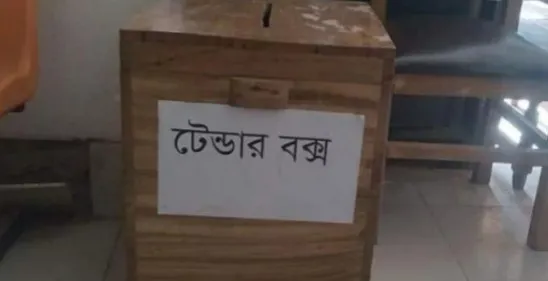 টেন্ডার বক্স